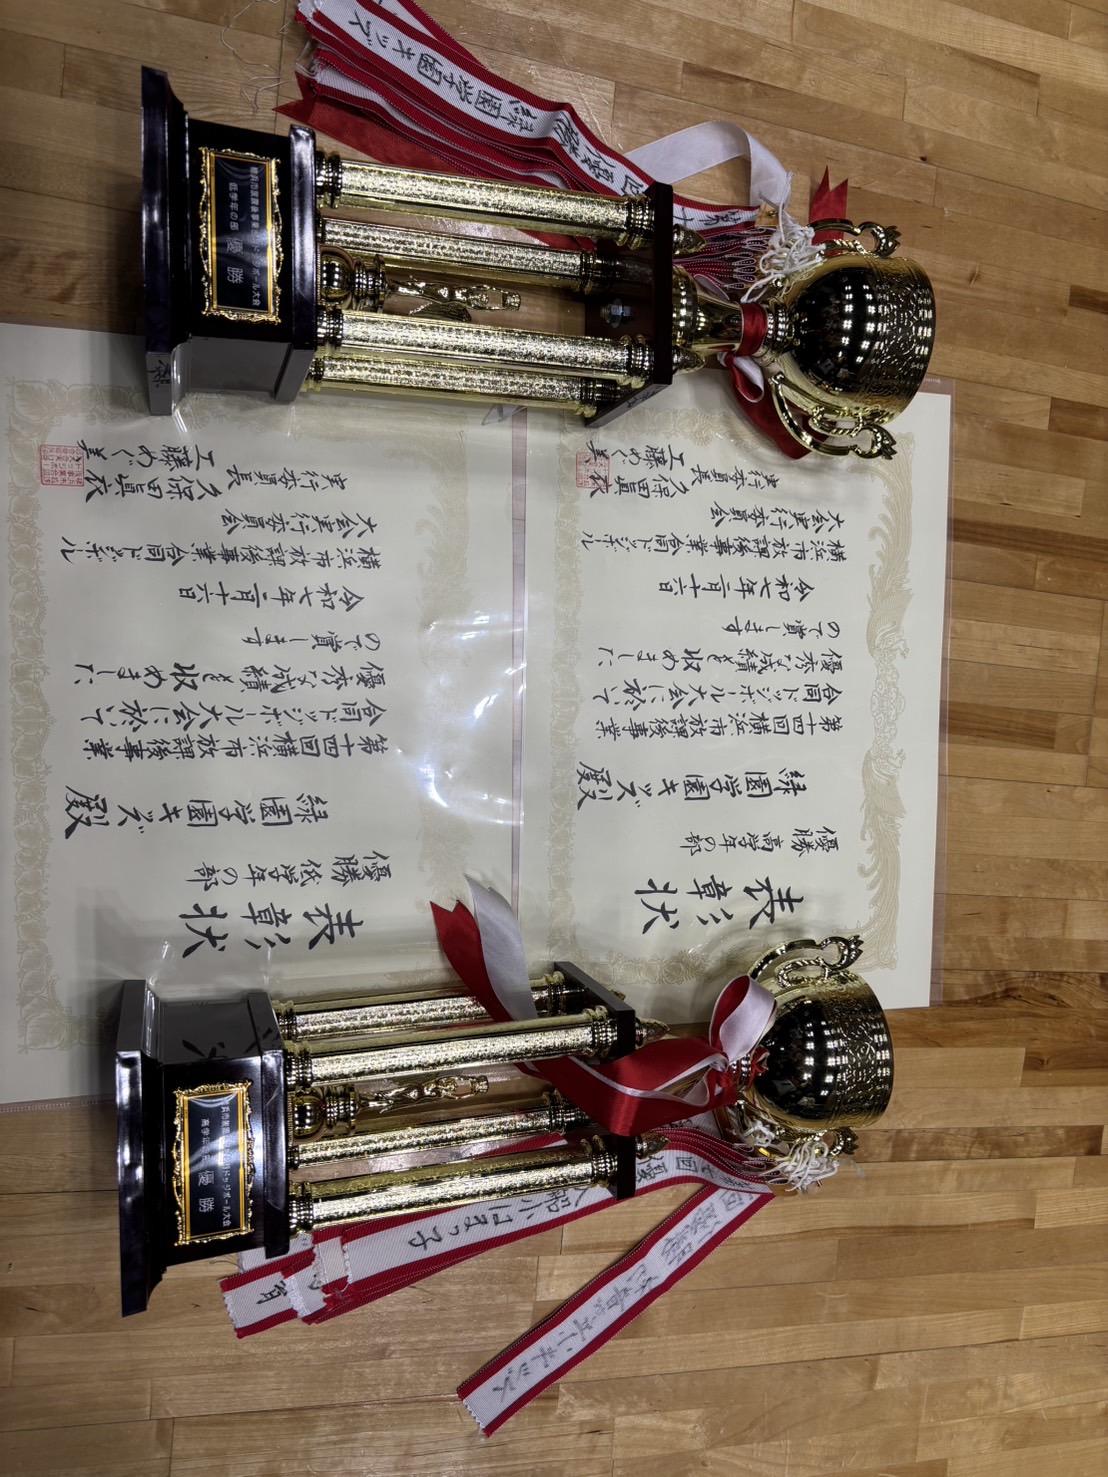 表彰状
優勝 高学年の部
緑園学園キッズ殿
第十四回横浜市放課後事業
合同ドッジボール大会に於て
優秀な成績を収めました
ので賞します
令和七年二月十六日
横浜市放課後事業合同ドッジボール
大会実行委員会
実行委員長 久保田眞衣
工藤めぐ美
表彰状
優勝 低学年の部
緑園学園キッズ殿
第十四回横浜市放課後事業
合同ドッジボール大会に於て
優秀な成績を収めました
ので賞します
令和七年二月十六日
横浜市放課後事業合同ドッジボール
大会実行委員会
実行委員長 久保田眞衣
工藤めぐ美
ドッジボール大会
低学年の部 優勝
ドッジボール大会
優勝
緑園学園キッズ
小はまっ子